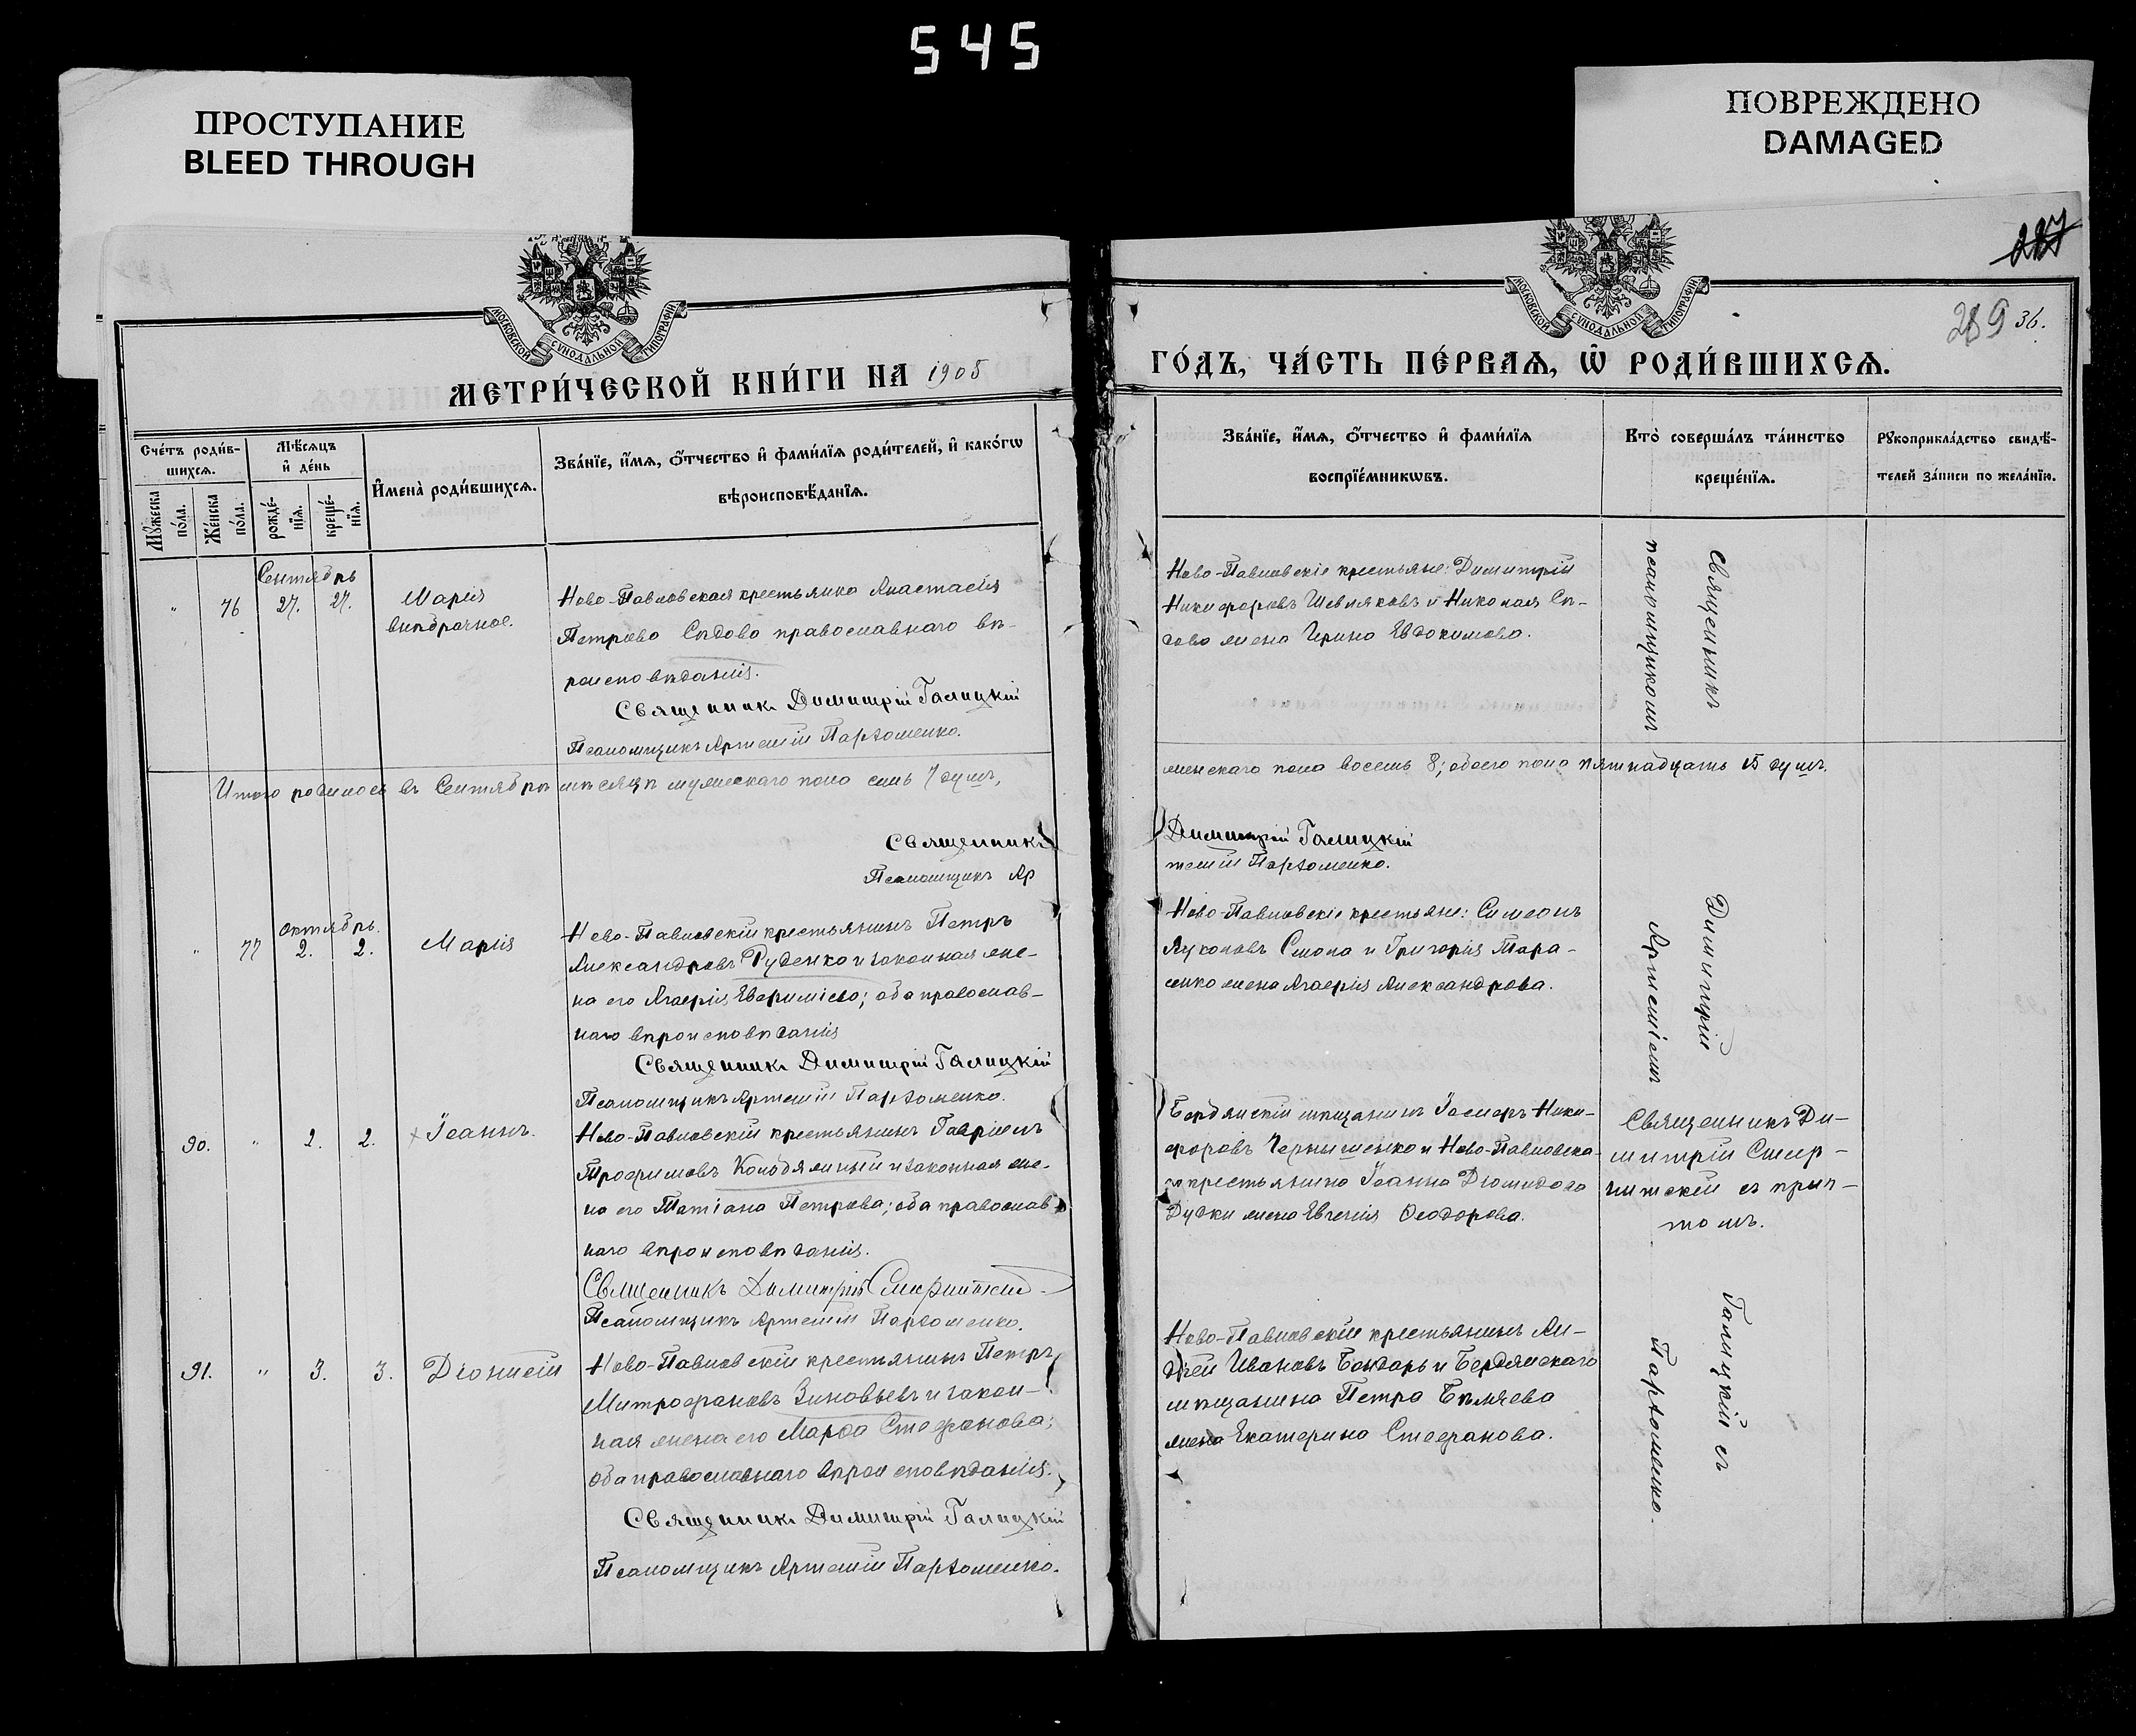 545
ПРОСТУПАНИЕ
BLEED THROUGH
ПОВРЕЖДЕНО
DAMAGED
МОСКОВСКОЙ СѴНОДАЛЬНОЙ ТИПОГРАФІИ
МОСКОВСКОЙ СѴНОДАЛЬНОЙ ТИПОГРАФІИ
289 36.
МЕТРИ́ЧЕСКОЙ КНИ́ГИ НА 1905
ГО́ДЪ, ЧА́СТЬ ПЕ́РВАѦ, Ѿ РОДИ́ВШИХСѦ.
Сче́тъ роди́в-
шихсѧ.
Мѣ́сѧцъ
и҆ де́нь
Мꙋ́жеска
по́ла.
Же́нска
по́ла.
рожде́-
нїѧ.
креще́-
нїѧ.
И҆мена̀ роди́вшихсѧ.
Зва́нїе, и҆́мѧ, ѻ҆́тчество и҆ фами́лїѧ роди́телей, и҆ како́гѡ
вѣроисповѣ́данїѧ.
Зва́нїе, и҆́мѧ, ѻ҆́тчество и҆ фами́лїѧ
воспрїе́мникѡвъ.
Кто̀ соверша́лъ та́инство
креще́нїѧ.
Рꙋкоприкла́дство свидѣ́-
телей за́писи по жела́нїю.
Сентябрь
" 76 27. 27.
Марія
внѣбрачное.
Ново-Павловская крестьянка Анастасія
Петрова Сѣдова православнаго вѣ-
роисповѣданія.
Священникъ Димитрій Галицкій
Псаломщикъ Артемій Пархоменко.
Ново-Павловскіе крестьяне: Димитрій
Никифоровъ Шевляковъ и Николая Сѣ-
дова жена Ирина Евдокимова.
Итого родилося въ Сентябрѣ мѣсяцѣ мужескаго пола семь 7 душъ,
женскаго пола восемь 8; обоего пола пятнадцать 15 душъ.
Священникъ Димитрій Галицкій
Псаломщикъ Артемій Пархоменко.
Октябрь.
" 77 2. 2.
Марія
Ново-Павловскій крестьянинъ Петръ
Александровъ Руденко и законная же-
на его Агафія Евфиміева; оба православ-
наго вѣроисповѣданія
Священникъ Димитрій Галицкій
Псаломщикъ Артемій Пархоменко.
Ново-Павловскіе крестьяне: Симеонъ
Лукановъ Смола и Григорія Тара-
сенко жена Агафія Александрова.
90. " 2. 2.
Іоаннъ.
Ново-Павловскій крестьянинъ Гавріилъ
Трофимовъ Колодяжный и законная же-
на его Татіана Петрова; оба православ-
наго вѣроисповѣданія.
Священникъ Димитрій Смеритскій
Псаломщикъ Артемій Пархоменко.
Бердянскій мѣщанинъ Іосифъ Ники-
форовъ Чернышенко и Ново-Павловска-
го крестьянина Іоанна Діомидова
Дудки жена Евгенія Ѳеодорова.
Священникъ Ди-
митрій Смер-
читскій съ прич-
томъ.
91. " 3. 3.
Діонисій
Ново-Павловскій крестьянинъ Петръ
Митрофановъ Зиновьевъ и закон-
ная жена его Марѳа Стефанова;
оба православнаго вѣроисповѣданія.
Священникъ Димитрій Галицкій
Псаломщикъ Артемій Пархоменко.
Ново-Павловскій крестьянинъ Ан-
дрей Ивановъ Бондарь и Бердянскаго
мѣщанина Петра Бѣляева
жена Екатерина Стефанова.
Священникъ Димитрій Галицкій съ
псаломщикомъ Артеміемъ Пархоменко.